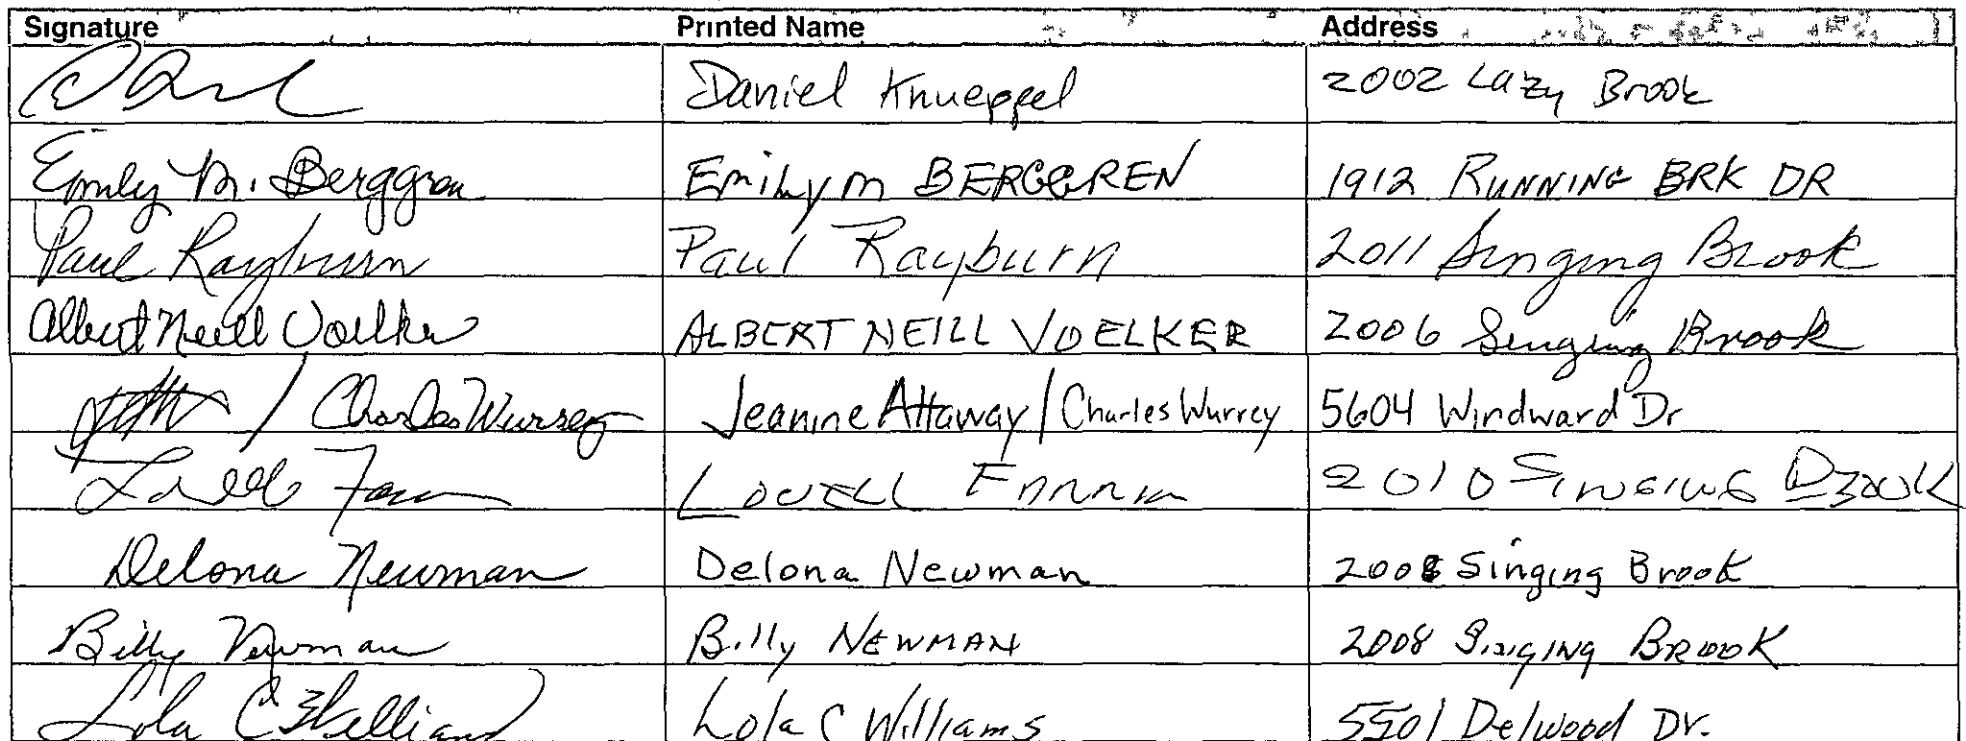 Signature Printed Name Address
Daniel Knueppel 2002 Lazy Brook
Emily M. Berggren Emily M BERGGREN 1912 RUNNING BRK DR
Paul Rayburn Paul Rayburn 2011 Singing Brook
Albert Neill Voelker ALBERT NEILL VOELKER 2006 Singing Brook
/ Charles Wurrey Jeanine Attaway / Charles Wurrey 5604 Windward Dr
Lovell LOVELL 2010 SINGING BROOK
Delona Newman Delona Newman 2008 Singing Brook
Billy Newman Billy NEWMAN 2008 Singing BROOK
Lola C Williams Lola C Williams 5501 Delwood Dr.